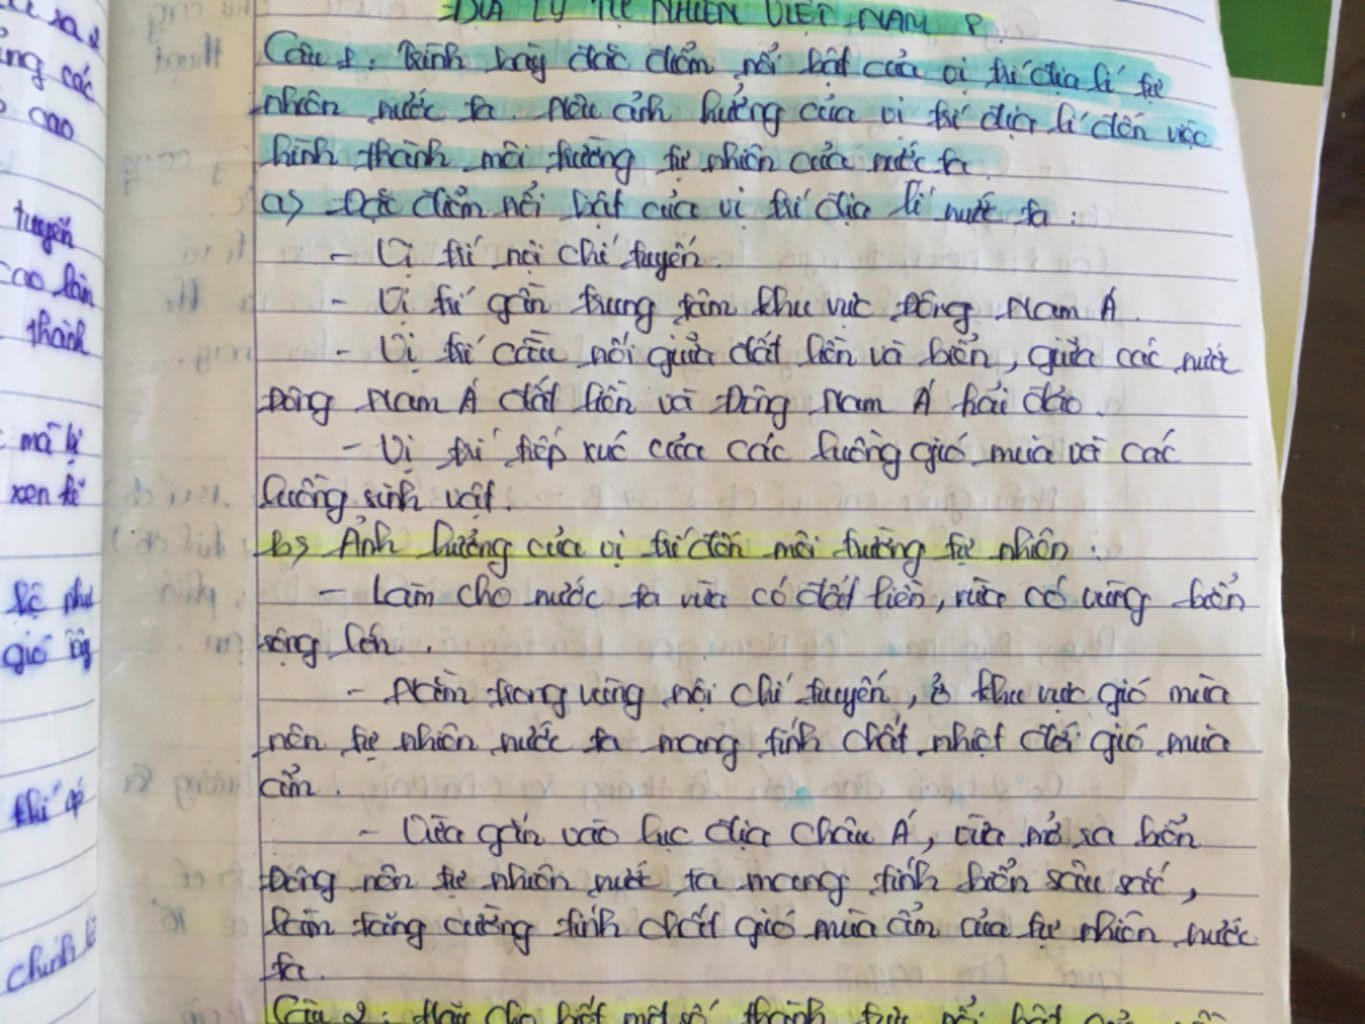 ĐỊA LÝ TỰ NHIÊN VIỆT NAM 8.
Câu 1: Trình bày đặc điểm nổi bật của vị trí địa lí tự
nhiên nước ta. Nêu ảnh hưởng của vị trí địa lí đến việc
hình thành môi trường tự nhiên của nước ta.
a) Đặc điểm nổi bật của vị trí địa lí nước ta:
- Vị trí nội chí tuyến.
- Vị trí gần trung tâm khu vực Đông Nam Á.
- Vị trí cầu nối giữa đất liền và biển, giữa các nước
Đông Nam Á đất liền và Đông Nam Á hải đảo.
- Vị trí tiếp xúc của các luồng gió mùa và các
luồng sinh vật.
b) Ảnh hưởng của vị trí đến môi trường tự nhiên:
- Làm cho nước ta vừa có đất liền, vừa có vùng biển
rộng lớn.
- Nằm trong vùng nội chí tuyến, ở khu vực gió mùa
nên tự nhiên nước ta mang tính chất nhiệt đới gió mùa
ẩm.
- Vừa gắn vào lục địa châu Á, vừa mở ra biển
Đông nên tự nhiên nước ta mang tính biển sâu sắc,
làm tăng cường tính chất gió mùa ẩm của tự nhiên nước
ta.
Câu 2: Hãy cho biết một số thành tựu nổi bật
cao
tuyến
cao làm
thành
mà bị
xen kẽ
gió
khí áp